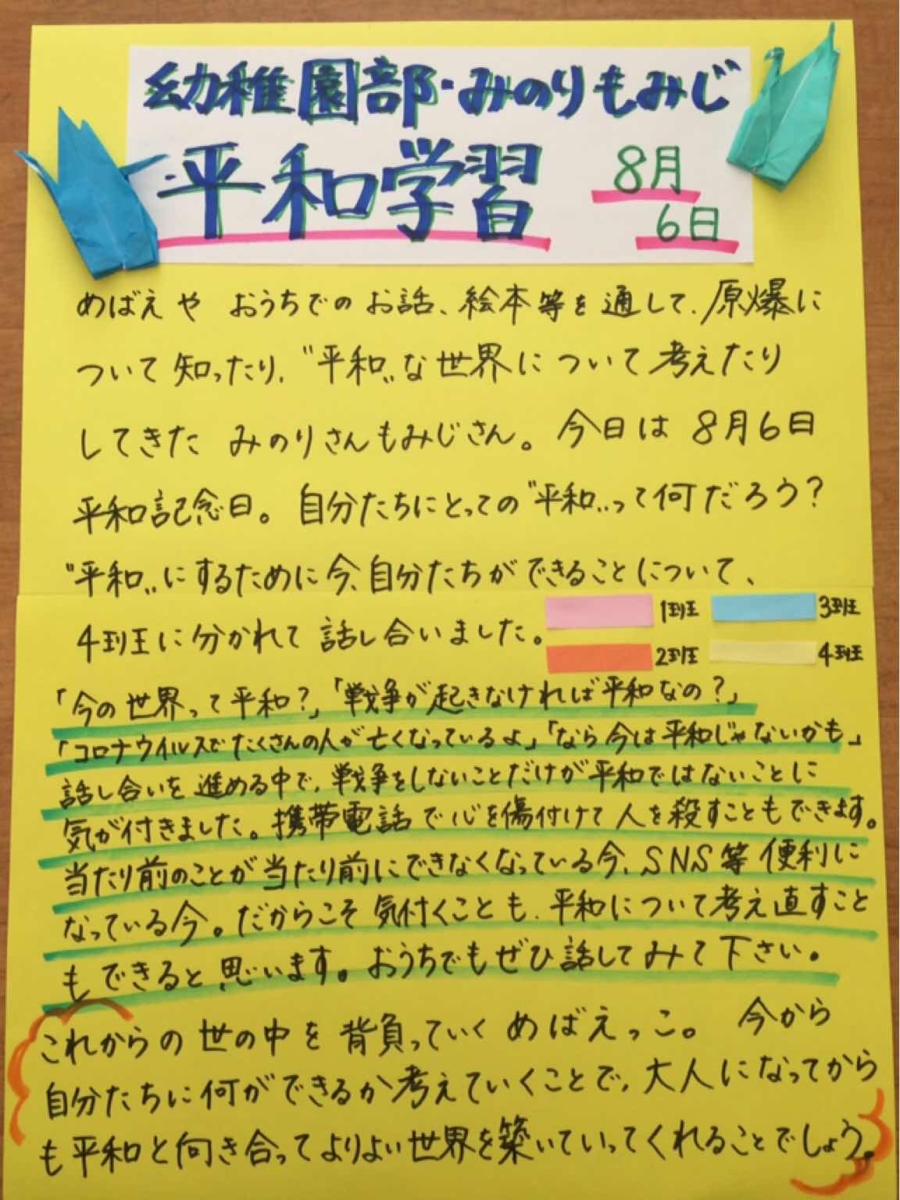 幼稚園部・みのりもみじ
平和学習 8月
6日
めばえや おうちでのお話、絵本等を通して、原爆に
ついて知ったり、〝平和〟な世界について考えたり
してきた みのりさんもみじさん。今日は8月6日
平和記念日。自分たちにとっての〝平和〟って何だろう?
〝平和〟にするために今、自分たちができることについて、
4班に分かれて話し合いました。
1班 3班
2班 4班
「今の世界って平和?」「戦争が起きなければ平和なの?」
「コロナウイルスでたくさんの人が亡くなっているよ」「なら今は平和じゃないかも」
話し合いを進める中で、戦争をしないことだけが平和ではないことに
気が付きました。携帯電話で心を傷付けて人を殺すこともできます。
当たり前のことが当たり前にできなくなっている今、SNS等便利に
なっている今。だからこそ気付くことも、平和について考え直すこと
もできると思います。おうちでもぜひ話してみて下さい。
これからの世の中を背負っていくめばえっこ。今から
自分たちに何ができるか考えていくことで、大人になってから
も平和と向き合ってよりよい世界を築いていってくれることでしょう。